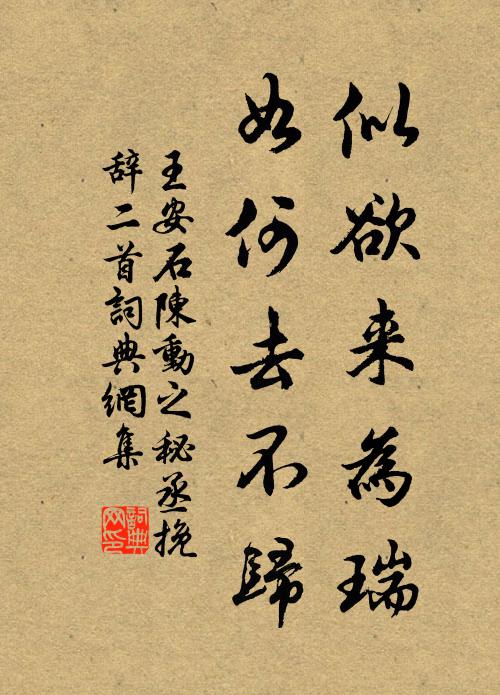 似欲来為瑞
如何去不歸
王安石陳動之秘丞挽
辞二首詞典網集
詞典
网印